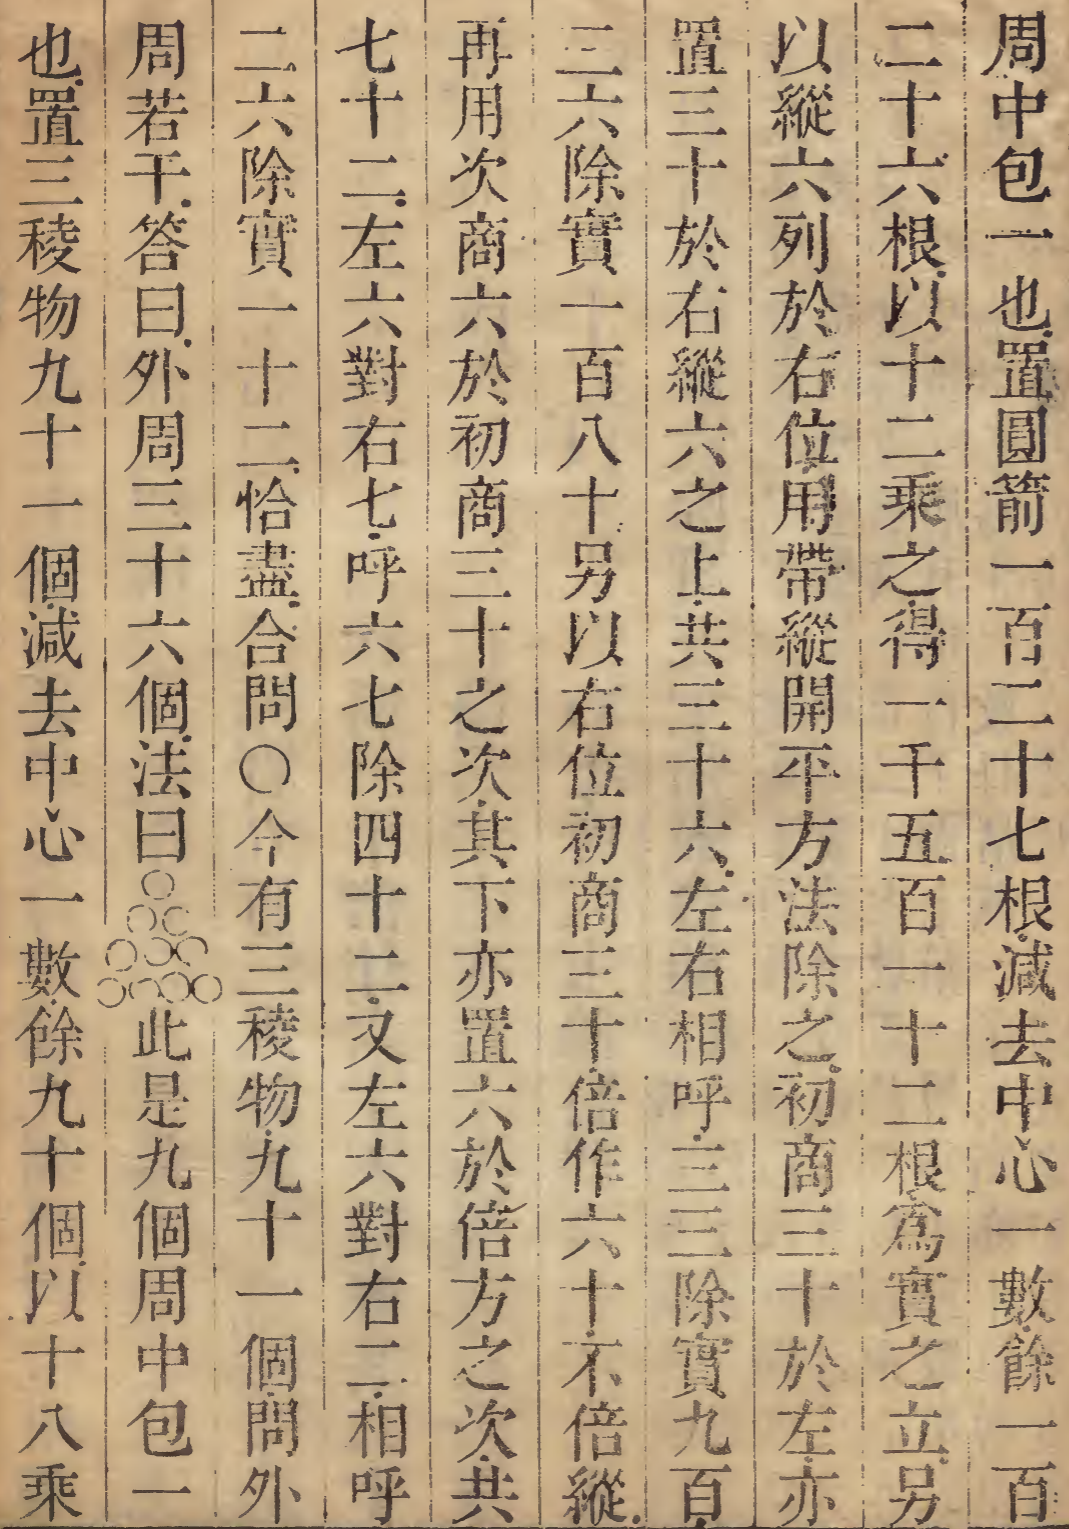 周中包一也置圓箭一百二十七根減去中心一數餘一百
二十六根以十二乘之得一千五百一十二根爲實之立另
以縱六列於右位用帶縱開平方法除之初商三十於左亦
置三十於右縱六之上共三十六左右相呼三三除實九百
三六除實一百八十另以右位初商三十倍作六十不倍縱
再用次商六於初商三十之次其下亦置六於倍方之次共
七十二左六對右七呼六七除四十二又左六對右二相呼
二六除實一十二恰盡合問〇今有三稜物九十一個問外
周若干答曰外周三十六個法曰此是九個周中包一
也置三稜物九十一個減去中心一數餘九十個以十八乘